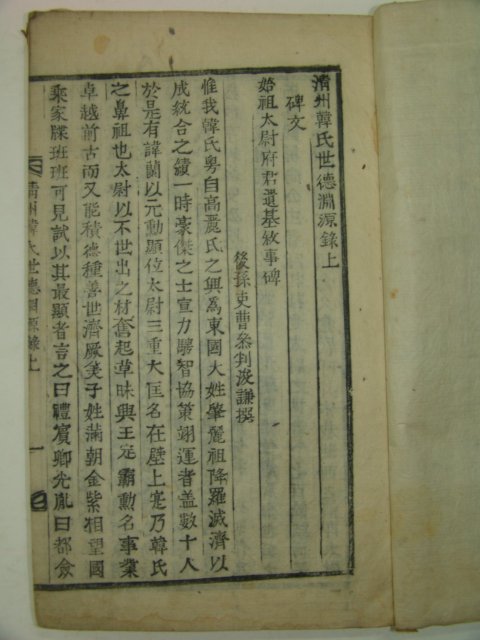 清州韓氏世德淵源錄上
碑文
始祖太尉府君遺基敘事碑
後孫吏曹參判浚謙撰
惟我韓氏粤自高麗氏之興爲東國大姓肇麗祖降羅滅濟以
成統合之績一時豪傑之士宣力騁智協策翊運者盖數十人
於是有諱蘭以元勳顯位太尉三重大匡名在壁上寔乃韓氏
之鼻祖也太尉以不世出之材奮起草昧興王定霸勳名事業
卓越前古而又能積德種善世濟厥美子姓滿朝金紫相望國
乘家牒班班可見試以其最顯者言之曰禮賓卿光胤曰都僉
清州韓氏世德淵源錄上
一